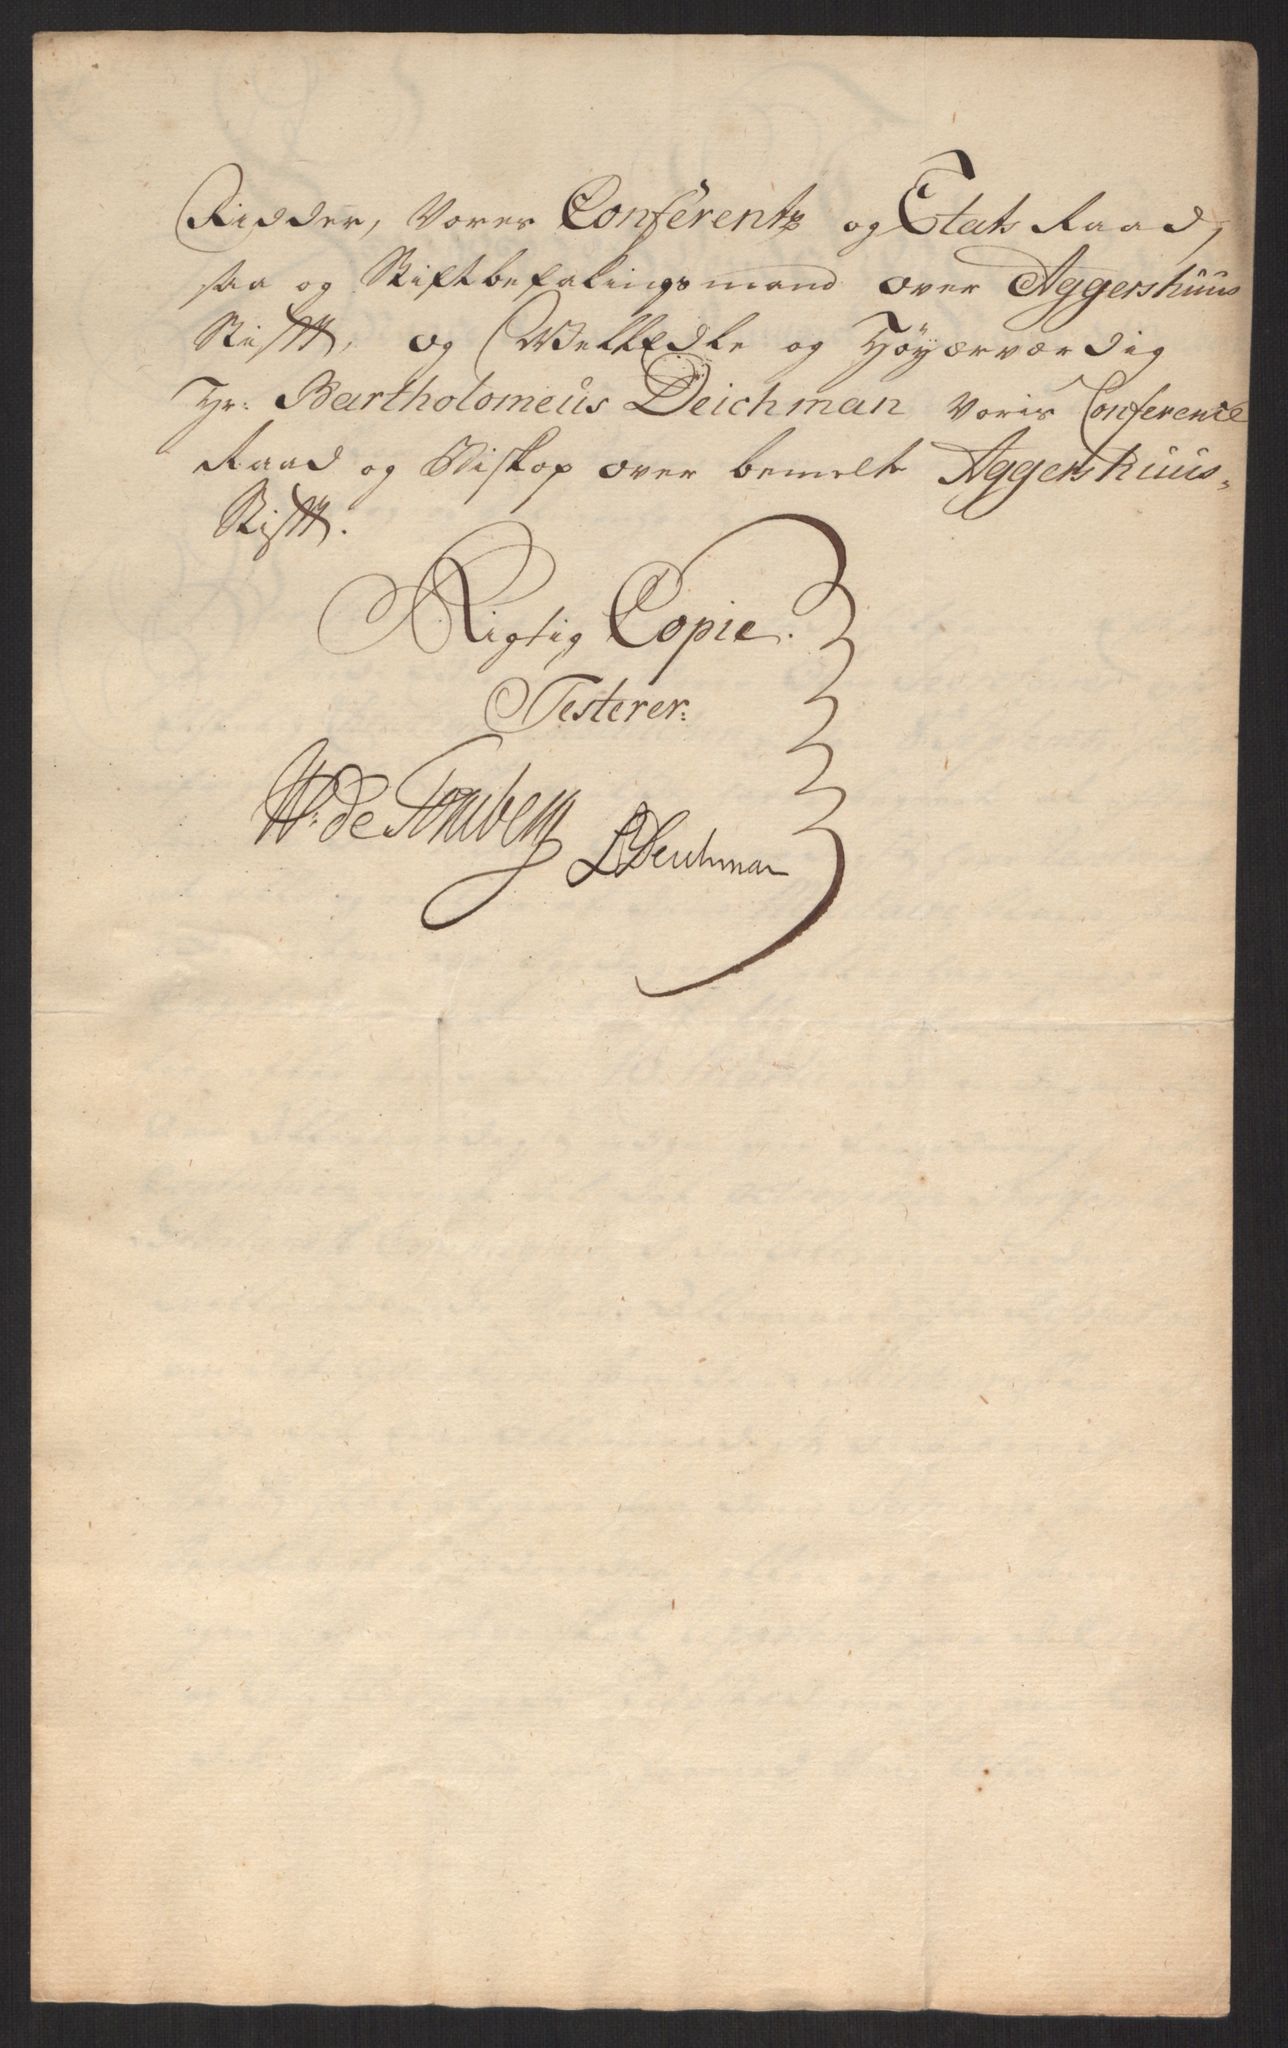 Ridder, Vores Conferentz og Etats Raad,
saa og Stiftbefalingsmand over Aggershuus
Stifft, og Wel Edle og Høyærværdig
Hr: Bartholomeus Deichman Voris Conference
Raad og Biskop over bemelte Aggershuus-
Stifft.
Rigtig Copie.
Testerer:
W: de Tonsberg
BDeichman